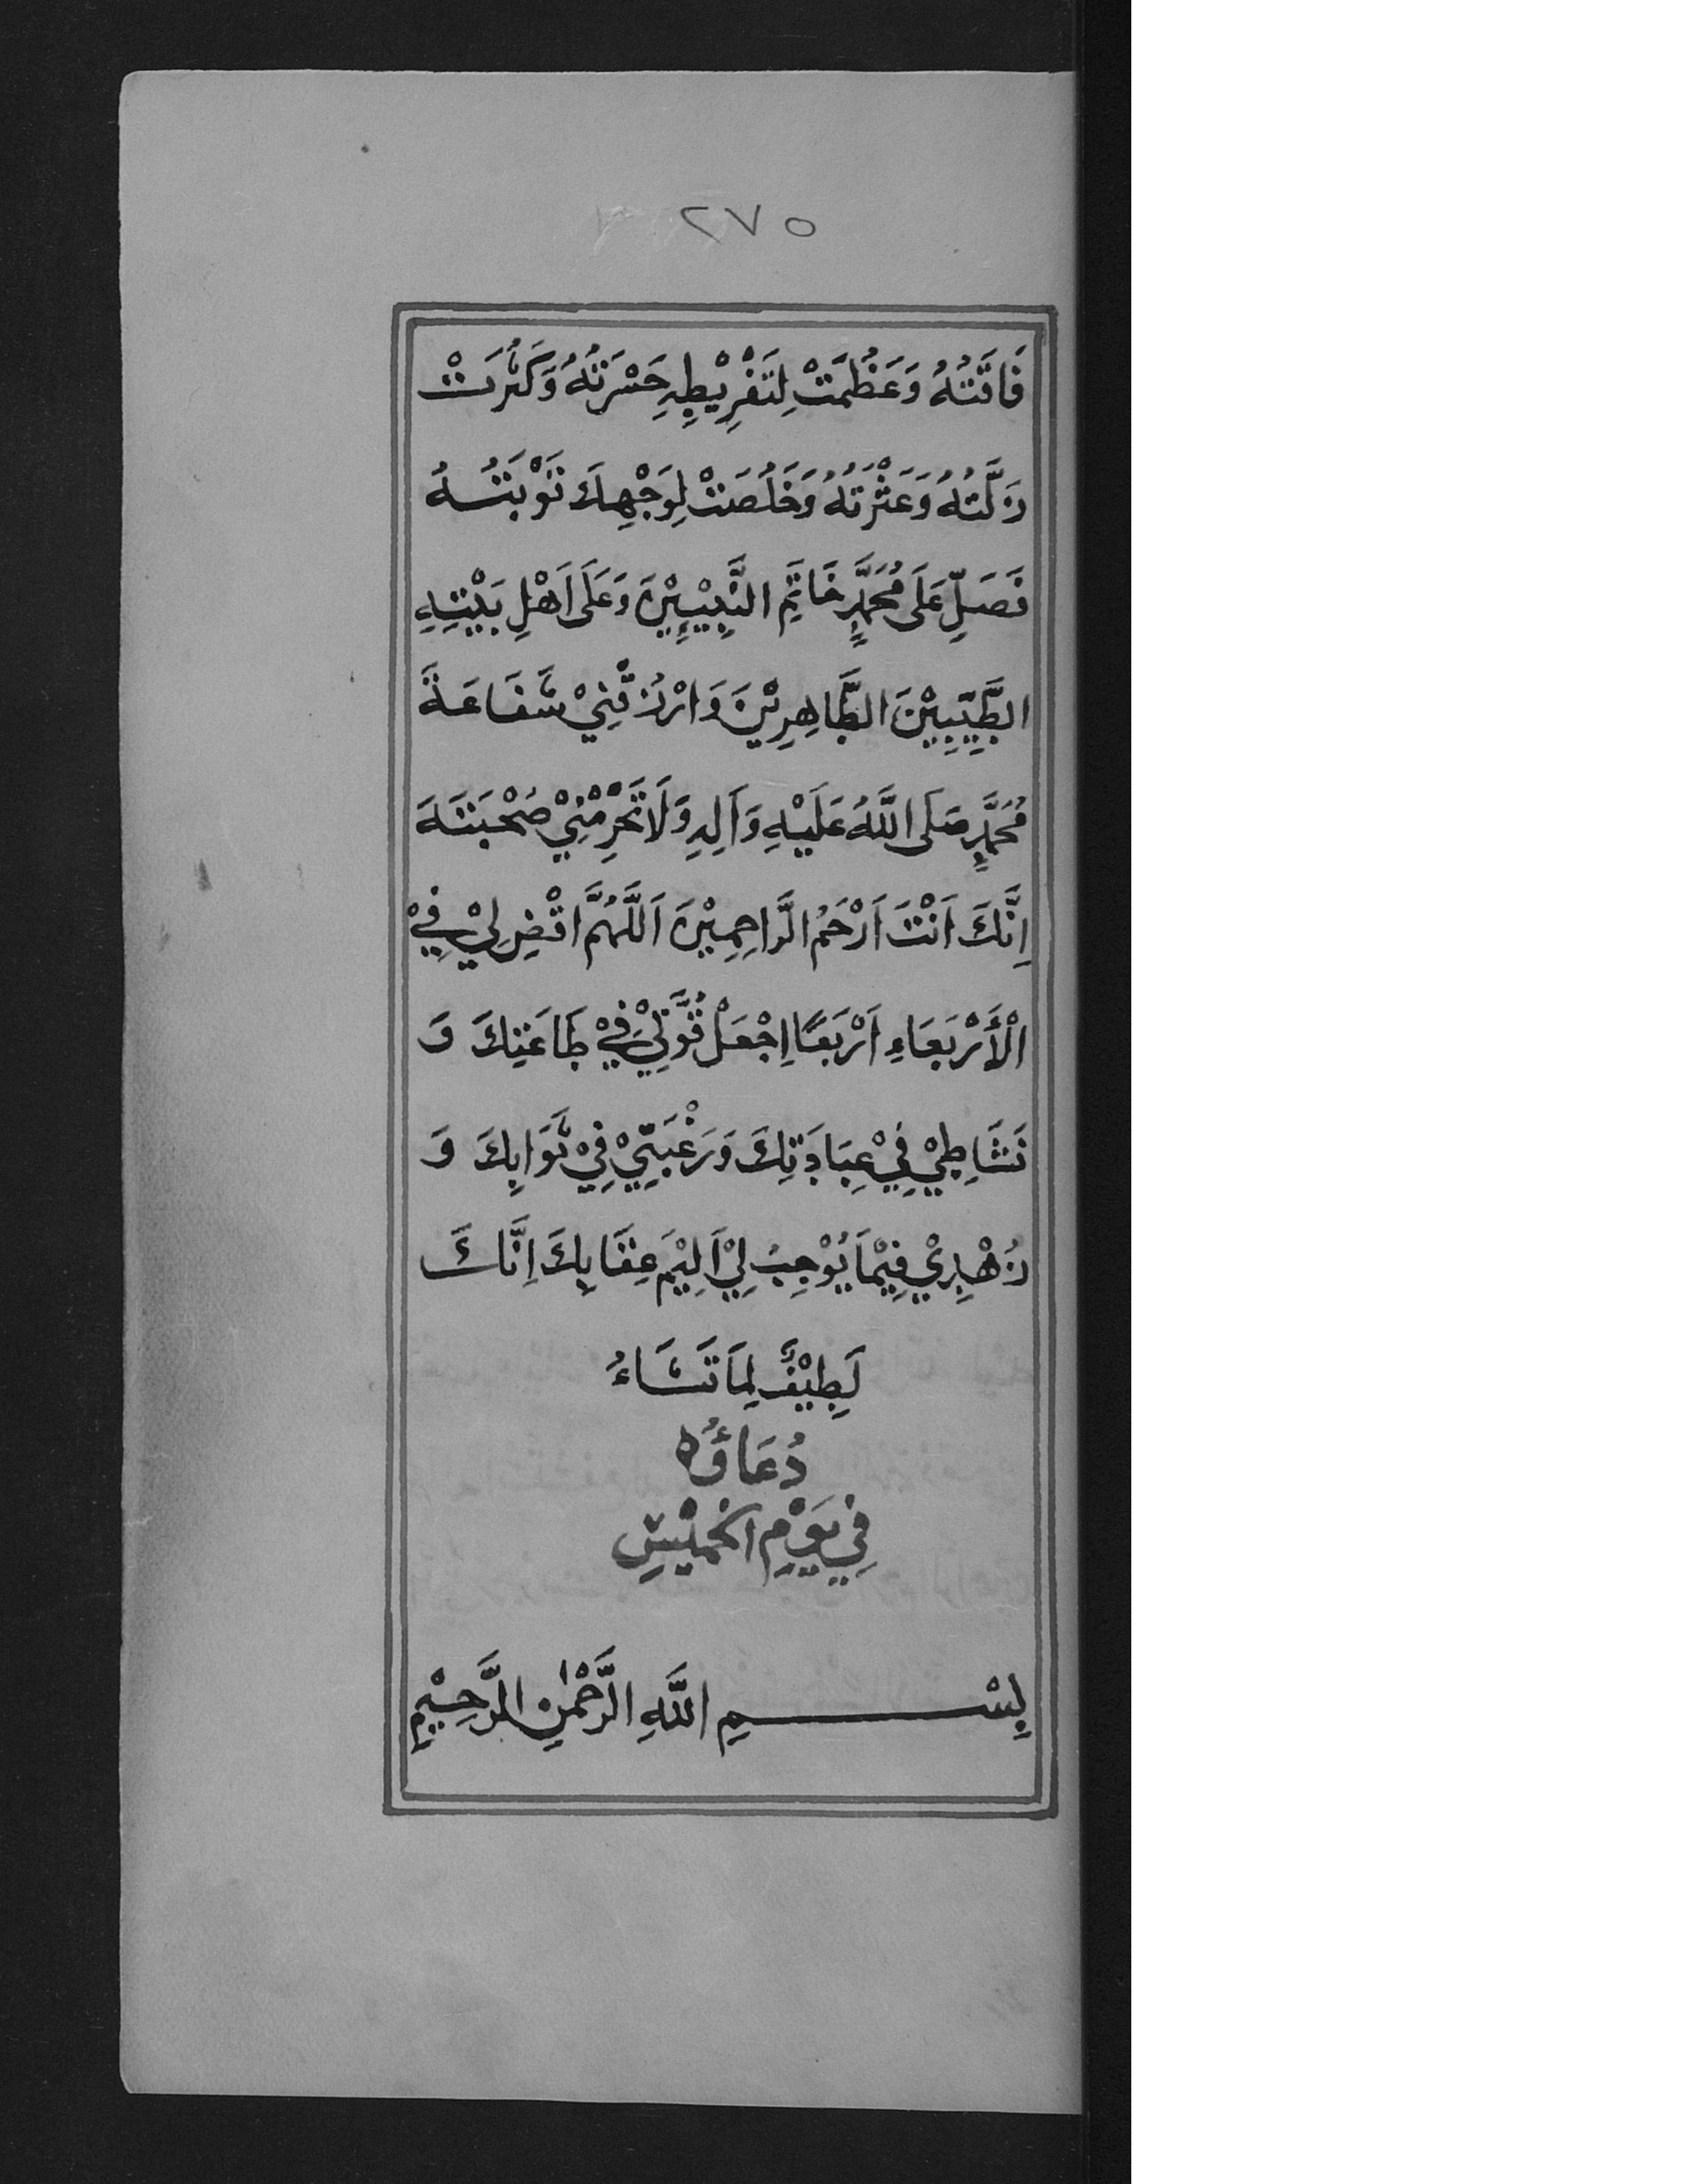 ٢٧٥
فَاقَتُهُ وَعَظُمَتْ لِتَفْرِيْطِهِ حَسْرَتُهُ وَكَثُرَتْ
زَلَّتُهُ وَعَثْرَتُهُ وَخَلُصَتْ لِوَجْهِكَ تَوْبَتُهُ
فَصَلِّ عَلَى مُحَمَّدٍ خَاتَمِ النَّبِيِّيْنَ وَعَلَى اَهْلِ بَيْتِهِ
الطَّيِّبِيْنَ الطَّاهِرِيْنَ وَارْزُقْنِيْ شَفَاعَةَ
مُحَمَّدٍ صَلَى اللَّهُ عَلَيْهِ وَاَلِهِ وَلَا تَحْرِمْنِيْ صُحْبَتَهَ
اِنَّكَ اَنْتَ اَرْحَمُ الرَّاحِمِيْنَ اَللَّهُمَّ اقْضِ لِيْ فِيْ
الْأَرْبَعَاءِ اَرْبَعًا اِجْعَلْ قُوَّتِيْ فِيْ طَاعَتِكَ وَ
نَشَاطِيْ فِيْ عِبَادَتِكَ وَرَغْبَتِيْ فِيْ ثَوَابِكَ وَ
زُهْدِيْ فِيْمَا يُوْجِبُ لِيْ اَلِيْمَ عِقَابِكَ اِنَّكَ
لَطِيْفٌ لِمَا تَشَاءُ
دُعَاؤُهُ
فِي يَوْمِ الخَمِيْسِ
بِسْمِ اللَّهِ الرَّحْمٰنِ الرَّحِيْمِ